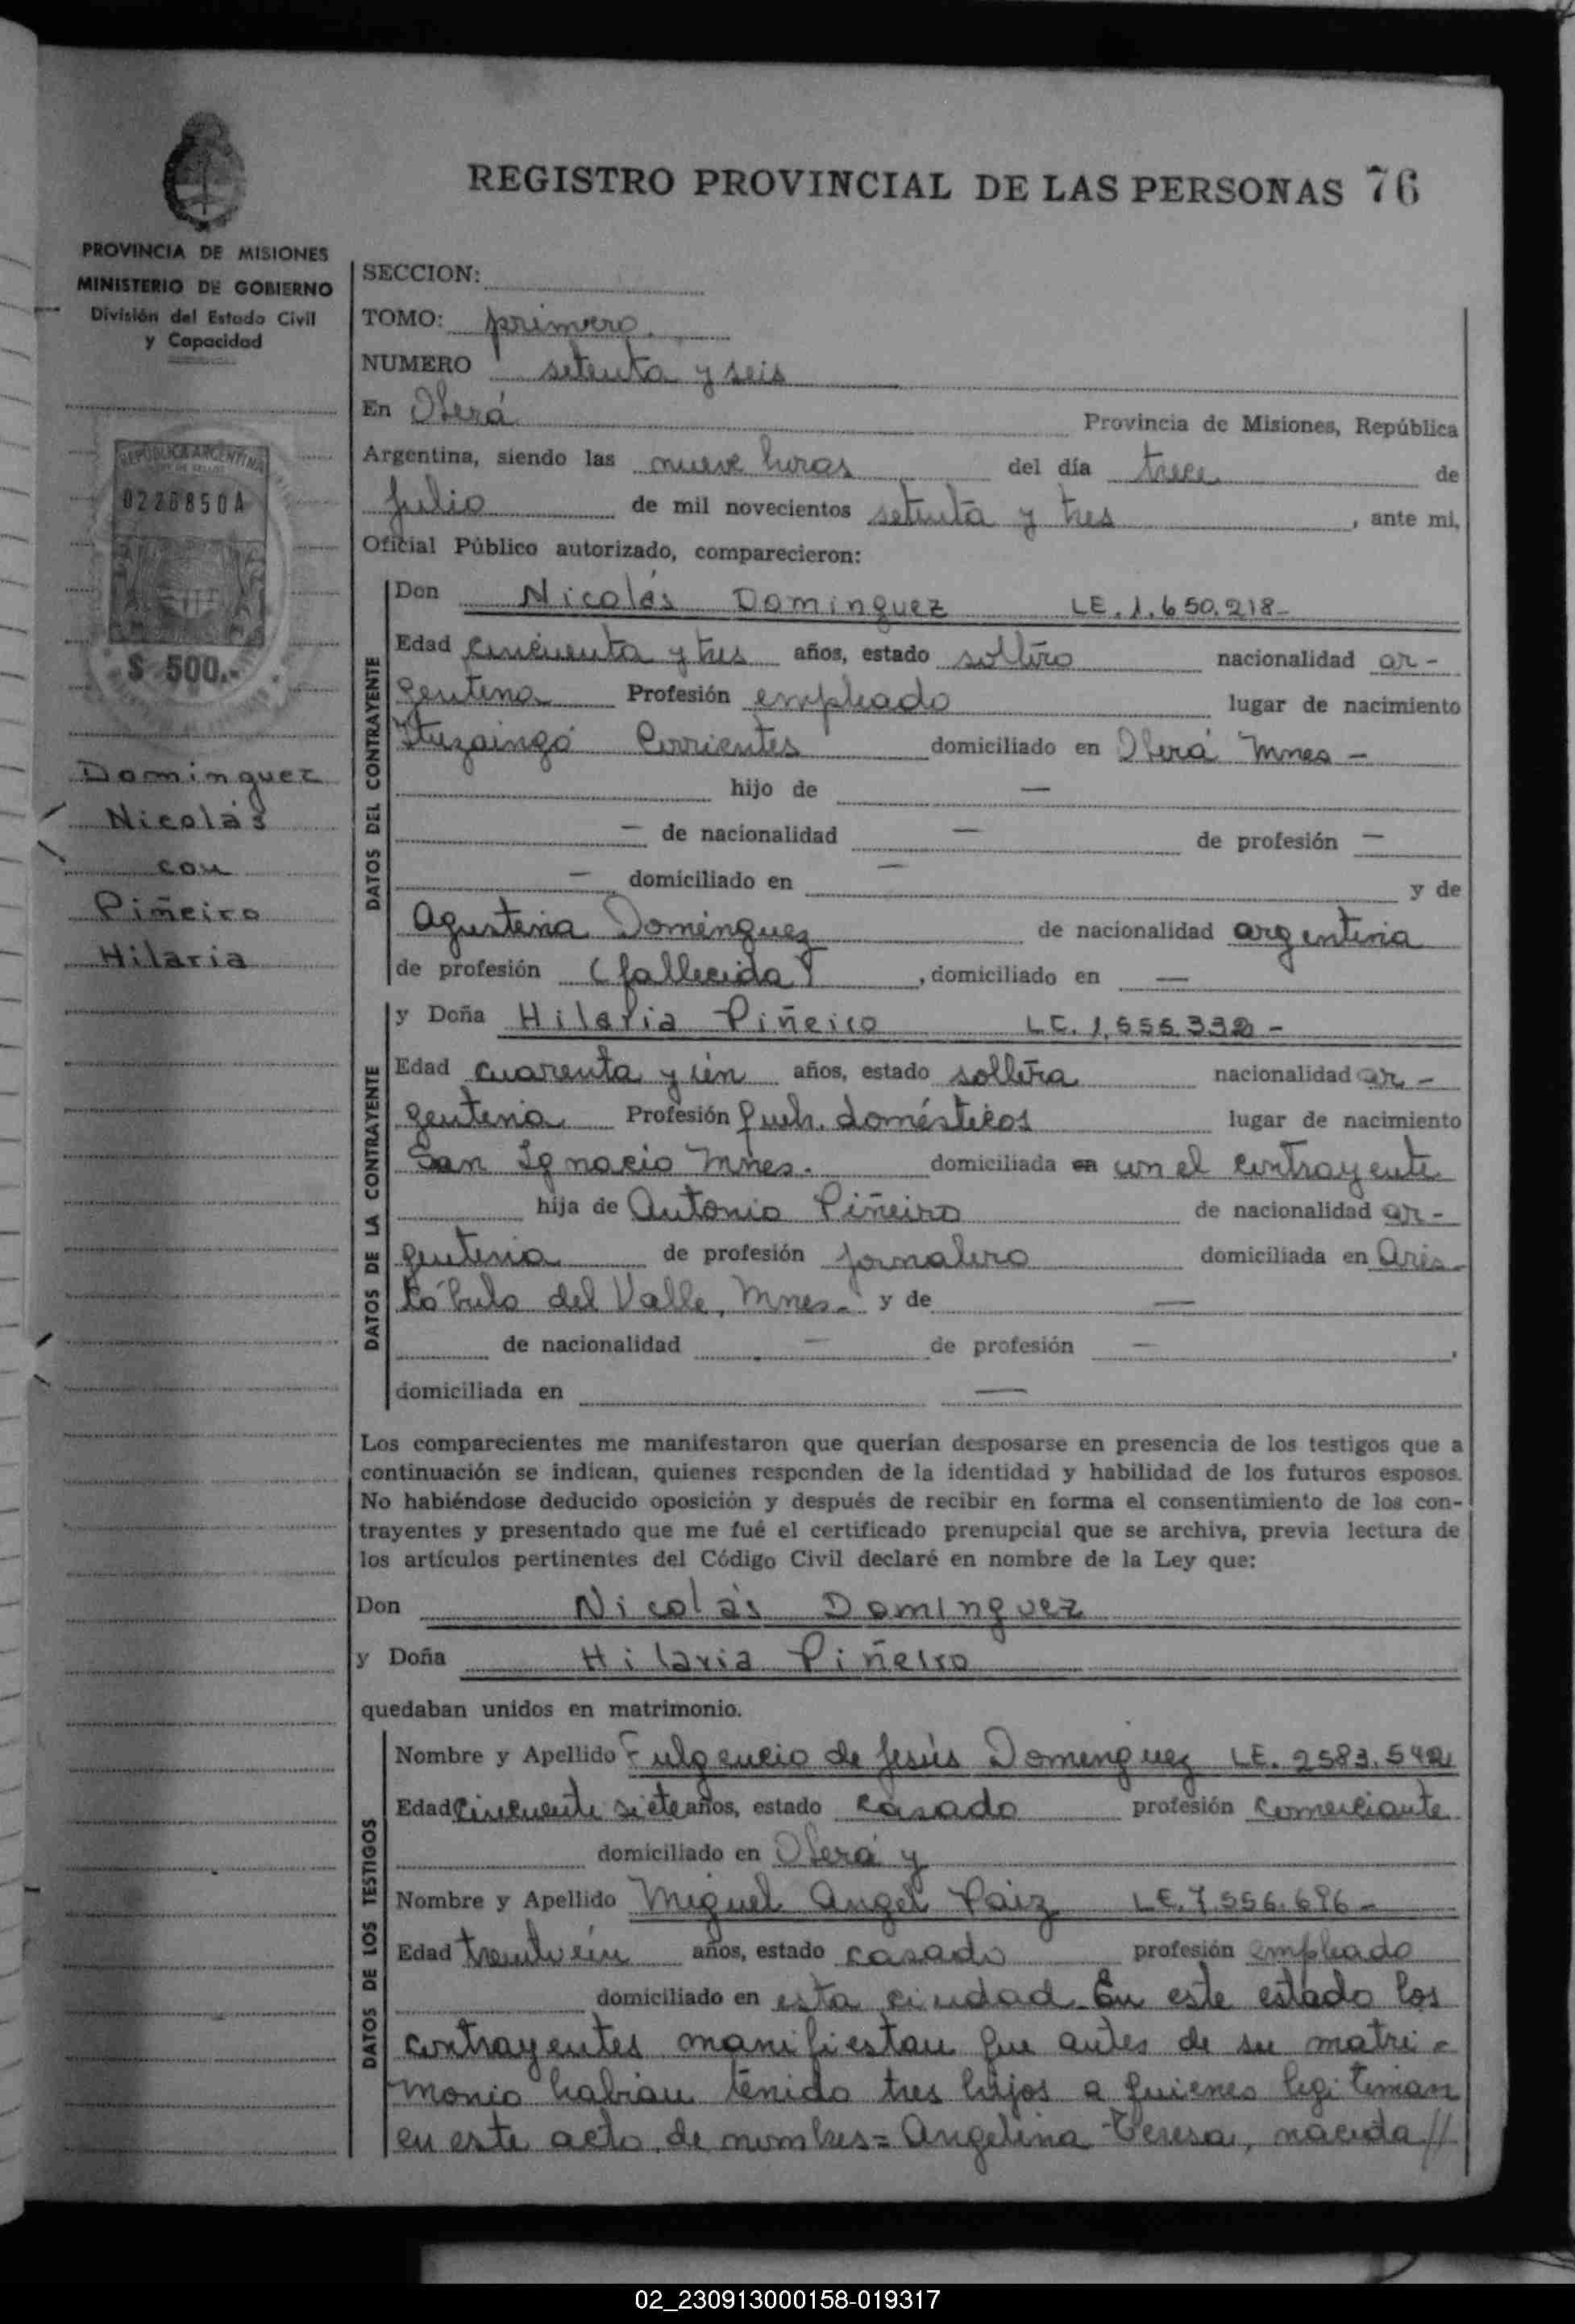 REGISTRO PROVINCIAL DE LAS PERSONAS 76
PROVINCIA DE MISIONES
MINISTERIO DE GOBIERNO
División del Estado Civil
y Capacidad
REPUBLICA ARGENTINA
0228850A
$ 500.-
Dominguez
Nicolás
con
Piñeiro
Hilaria
SECCION:
TOMO: primero.
NUMERO setenta y seis
En Oberá Provincia de Misiones, República
Argentina, siendo las nueve horas del día trece de
julio de mil novecientos setenta y tres, ante mi,
Oficial Público autorizado, comparecieron:
DATOS DEL CONTRAYENTE
Don Nicolás Dominguez LE. 1.650.218-
Edad cincuenta y tres años, estado soltero nacionalidad ar-
gentina Profesión empleado lugar de nacimiento
Ituzaingó Corrientes domiciliado en Oberá Mnes -
hijo de —
— de nacionalidad — de profesión —
— domiciliado en — y de
Agustina Dominguez de nacionalidad argentina
de profesión (fallecida), domiciliado en —
DATOS DE LA CONTRAYENTE
y Doña Hilaria Piñeiro LC. 1.656.332-
Edad cuarenta y un años, estado soltera nacionalidad ar-
gentina Profesión queh. domésticos lugar de nacimiento
San Ignacio Mnes. domiciliada en con el contrayente
hija de Antonio Piñeiro de nacionalidad ar-
gentina de profesión jornalero domiciliada en Aris-
tóbulo del Valle, Mnes- y de —
de nacionalidad — de profesión —,
domiciliada en —
Los comparecientes me manifestaron que querían desposarse en presencia de los testigos que a
continuación se indican, quienes responden de la identidad y habilidad de los futuros esposos.
No habiéndose deducido oposición y después de recibir en forma el consentimiento de los con-
trayentes y presentado que me fué el certificado prenupcial que se archiva, previa lectura de
los artículos pertinentes del Código Civil declaré en nombre de la Ley que:
Don Nicolás Dominguez
y Doña Hilaria Piñeiro
quedaban unidos en matrimonio.
DATOS DE LOS TESTIGOS
Nombre y Apellido Fulgencio de Jesús Dominguez LE. 2583.542
Edad cincuenta siete años, estado casado profesión comerciante
domiciliado en Oberá y
Nombre y Apellido Miguel Angel Paiz LE. 7.556.696-
Edad treintiún años, estado casado profesión empleado
domiciliado en esta ciudad. En este estado los
contrayentes manifiestan que antes de su matri-
monio habian tenido tres hijos a quienes legitiman
en este acto, de nombres= Angelina Teresa, nacida//
02_230913000158-019317